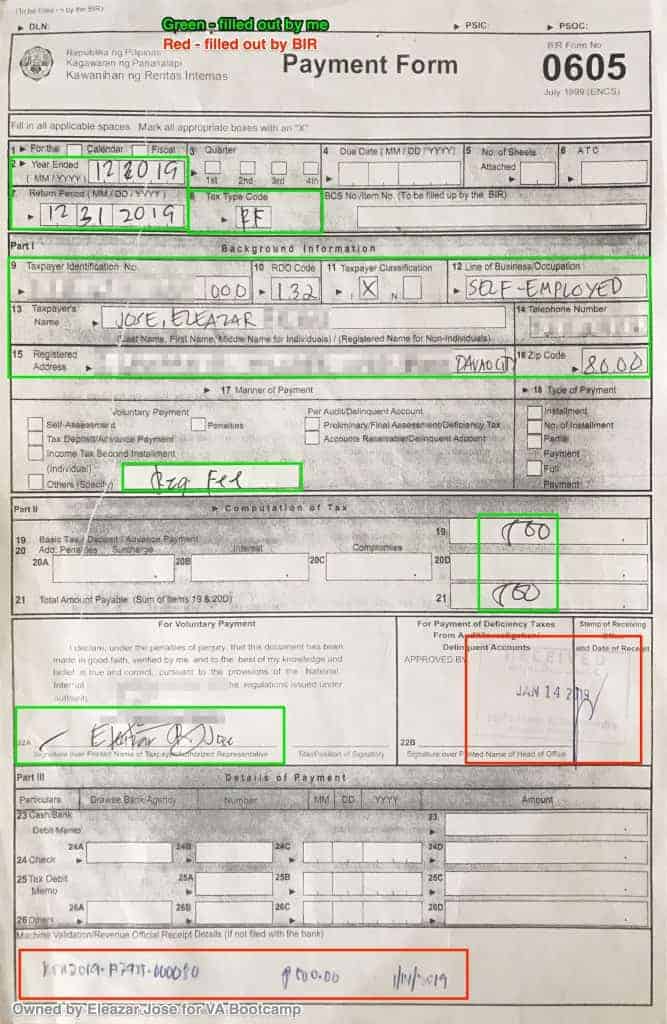 (To be filled up by the BIR)
Green - filled out by me
DLN:
PSIC:
PSOC:
Red - filled out by BIR
Republika ng Pilipinas
Kagawaran ng Pananalapi
Kawanihan ng Rentas Internas
Payment Form
BIR Form No
0605
July 1999 (ENCS)
Fill in all applicable spaces. Mark all appropriate boxes with an "X"
1 For the Calendar Fiscal
3 Quarter
4 Due Date ( MM / DD / YYYY)
5 No. of Sheets
6 ATC
2 Year Ended
( MM / YYYY )
12 2019
1st 2nd 3rd 4th
Attached
7 Return Period ( MM / DD / YYYY )
8 Tax Type Code
BCS No./Item No. (To be filled up by the BIR)
12 31 2019
RF
Part I
Background Information
9 Taxpayer Identification No.
10 RDO Code
11 Taxpayer Classification
12 Line of Business/Occupation
000
132
I X N
SELF-EMPLOYED
13 Taxpayer's
Name
JOSE, ELEAZAR
14 Telephone Number
(Last Name, First Name, Middle Name for Individuals) / (Registered Name for Non-Individuals)
15 Registered
Address
DAVAO CITY
16 Zip Code
8000
17 Manner of Payment
18 Type of Payment
Voluntary Payment
Per Audit/Delinquent Account
Installment
Self-Assessment
Penalties
Preliminary/Final Assessment/Deficiency Tax
No. of Installment
Tax Deposit/Advance Payment
Accounts Receivable/Delinquent Account
Partial
Income Tax Second Installment
Payment
(Individual)
Full
Others (Specify)
Reg Fee
Payment
Part II
Computation of Tax
19 Basic Tax / Deposit / Advance Payment
19
500
20 Add: Penalties Surcharge
Interest
Compromise
20A
20B
20C
20D
21 Total Amount Payable (Sum of Items 19 & 20D)
21
500
For Voluntary Payment
For Payment of Deficiency Taxes
Stamp of Receiving
From Audit/Investigation/
I declare, under the penalties of perjury, that this document has been
Delinquent Accounts
and Date of Receipt
made in good faith, verified by me, and to the best of my knowledge and
APPROVED BY
RECEIVED
belief is true and correct, pursuant to the provisions of the National
regulations issued under
authority
JAN 14 2019
22A
Eleazar Jose
22B
Signature over Printed Name of Taxpayer/Authorized Representative
Title/Position of Signatory
Signature over Printed Name of Head of Office
Part III
Details of Payment
Particulars
Drawee Bank/Agency
Number
MM DD YYYY
Amount
23 Cash/Bank
23
Debit Memo
24A
24B
24C
24D
24 Check
25 Tax Debit
25A
25B
25C
Memo
26A
26B
26C
26D
26 Others
Machine Validation/Revenue Official Receipt Details (If not filed with the bank)
₱500.00
1/14/2019
Owned by Eleazar Jose for VA Bootcamp